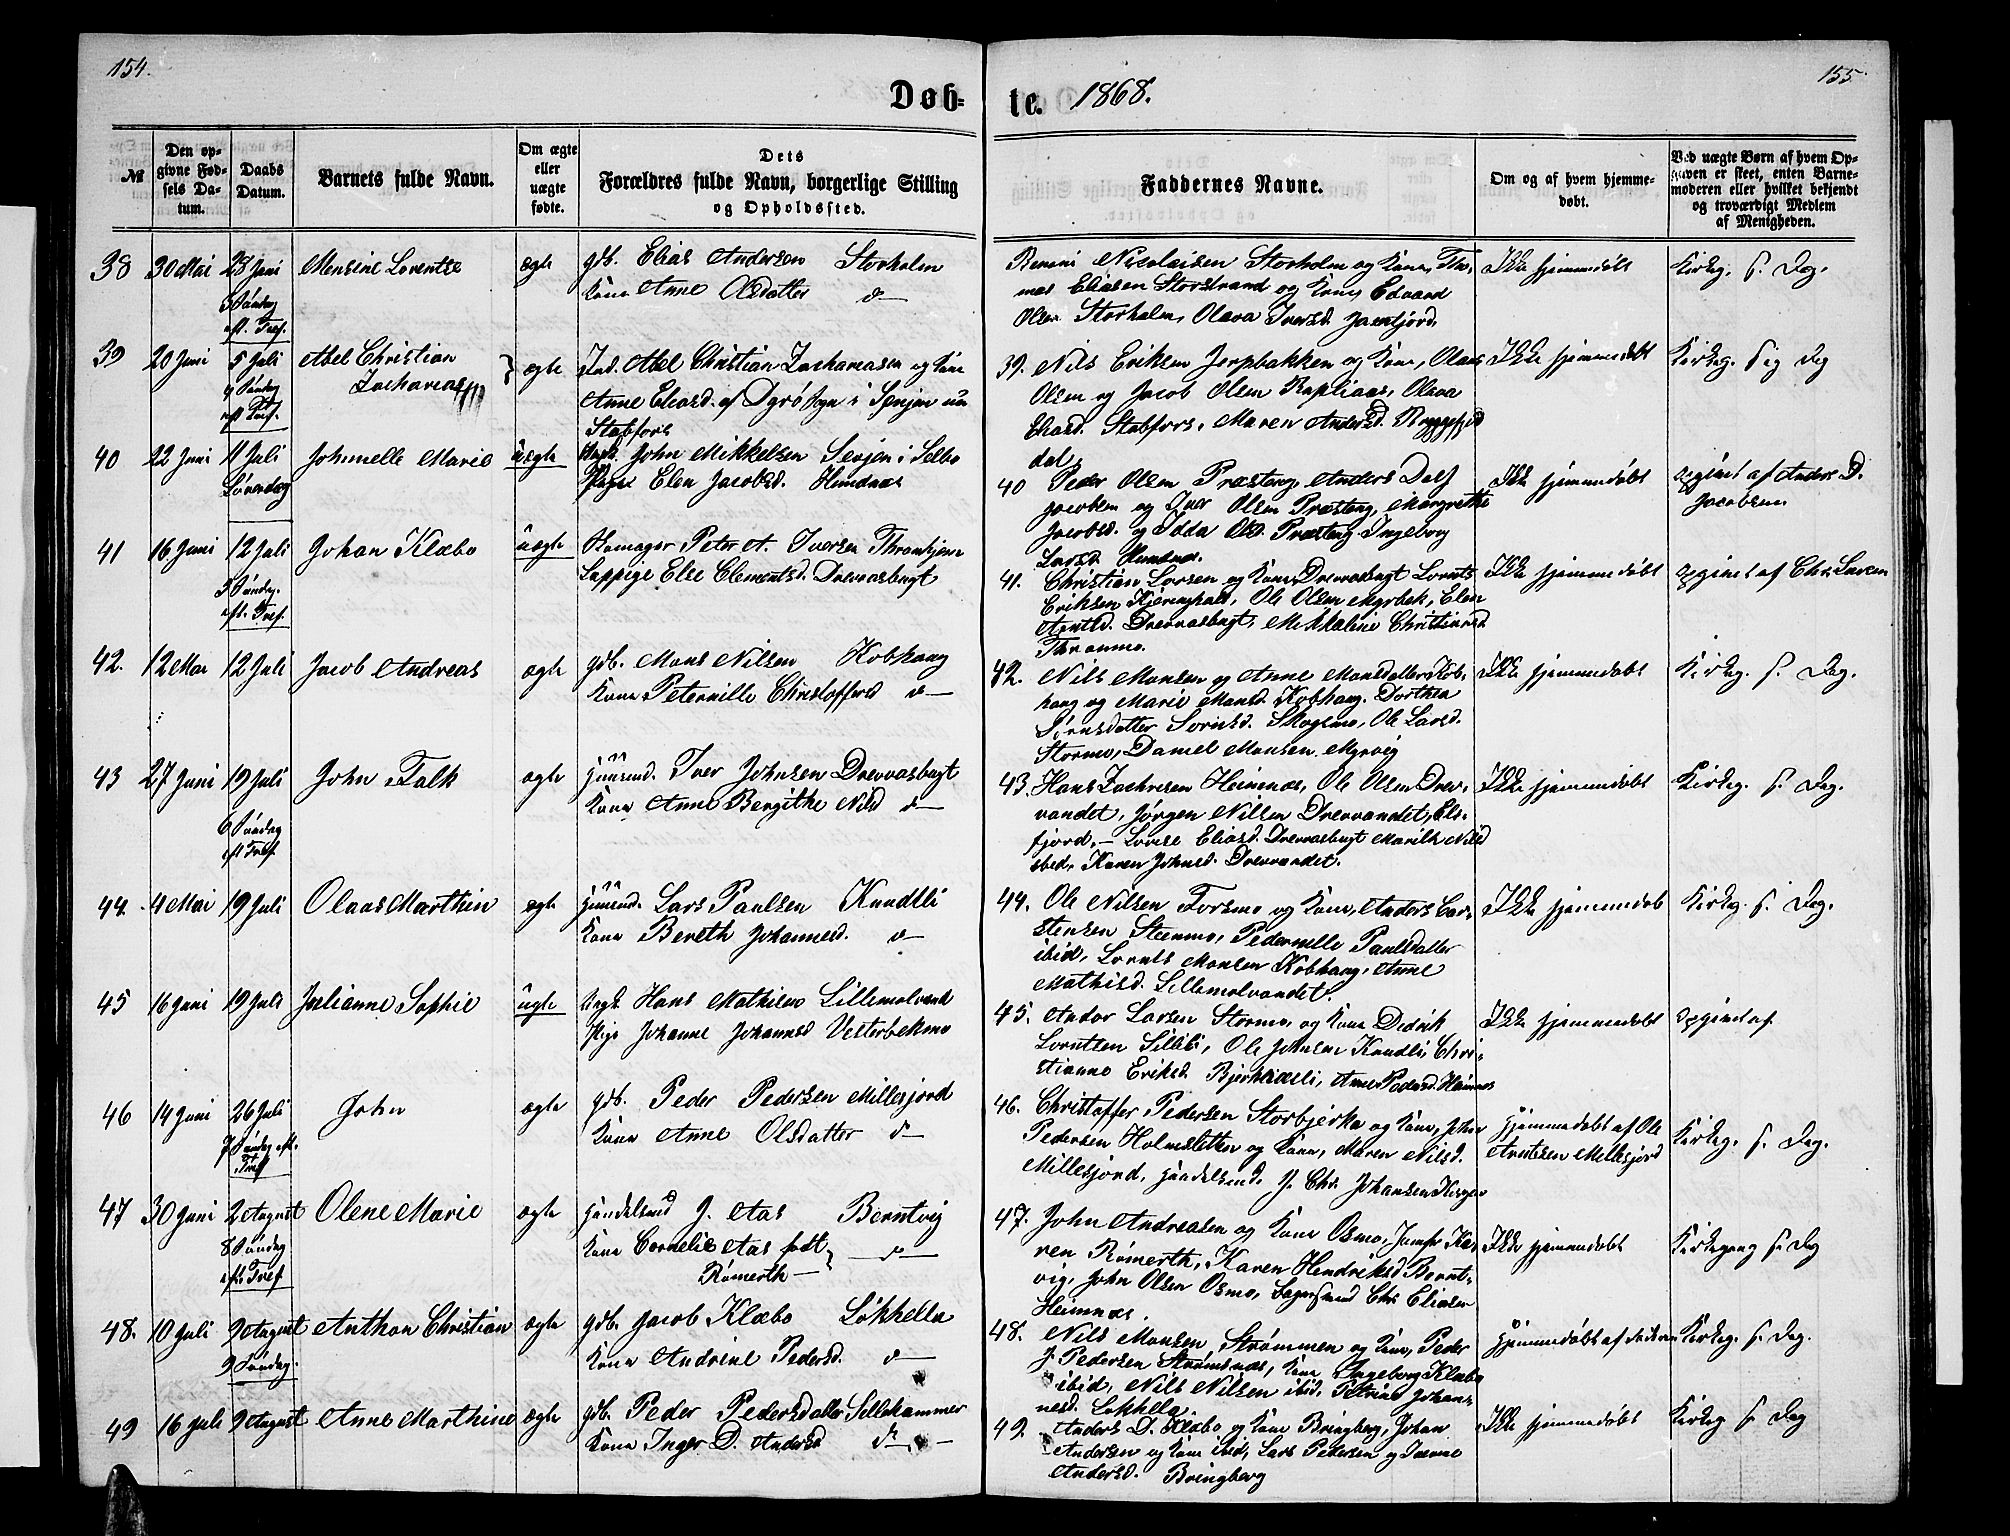 154.
155
Døb-
te. 1868.
№
Den op-
givne Fød-
sels Da-
tum.
Daabs
Datum.
Barnets fulde Navn.
Om ægte
eller
uægte
fødte.
Dets
Forældres fulde Navn, borgerlige Stilling
og Opholdssted.
Faddernes Navne.
Om og af hvem hjemme-
døbt.
Ved uægte Børn af hvem Op-
given er skeet, enten Barne-
moderen eller hvilket bekjendt
og troværdigt Medlem
af Menigheden.
38 30 Mai 28 Juni Mensine Lorentze ægte gdb. Elias Andersen Storholm
Kone Anne Olsdatter do
Nicolaisen Storholm og Kone, Tho-
mas Eliasen Storstrand og Kone, Edvard
Olsen Storholm, Olava Iversd.
Ikke hjemmedøbt
Kirkeg. s. Dag.
39 20 Juni 5 Juli Abel Christian
Zacharias
ægte Ind. Abel Christian Zachariasen og Kone
Anne Eliasd. af Dyrø Sogn i Senjen nu
Stabfors
39. Nils Eriksen Jerpbakken og Kone, Olaus
Olsen og Jacob Olsen Rapliaas, Olava
Eliasd. Stabfors, Maren Andersd.
dal
Ikke hjemmedøbt
Kirkeg. sig Dag
40 22 Juni 11 Juli Johnelle Marie uægte John Mikkelsen i Selbo
Pige Elen Jacobsd. Hemnæs
Løverdag
40 Peder Olsen Præsteng, Anders Dass
Jacobsen og Iver Olsen Præsteng, Margrethe
Jacobsd. og Idda Olsd. Præsteng Ingeborg
Larsd. Hemnæs.
Ikke hjemmedøbt
opgivet af Anders D.
Jacobsen
41 16 Juni 12 Juli Johan Klæbo uægte Skomager Peter A. Iversen Thronhjem
Lappige Else Clementsd. Drevvasbugt
5 Søndag
eft. Tref.
41. Christian Larsen og Kone Drevvasbugt Lornts
Eriksen Kjerringhals, Ole Olsen Myrbek, Elen
Arntsd. Drevvasbugt, Mikkaline Christiansd.
Thraanmo.
Ikke hjemmedøbt
opgivet af Chr. Larsen
42. 12 Mai 12 Juli Jacob Andreas ægte gdb. Mons Nilsen Kobhaug
Kone Peternille Christoffersd do
42. Nils Monsen og Anne Monsdatter Kob-
haug og Marie Monsd. Kobhaug. Dorthea
Sørensdatter Sørnesd. Skogsmo, Ole Larsd.
Stormo, Daniel Monsen Myrvig
Ikke hjemmedøbt
Kirkeg. s. Dag.
43 27 Juni 19 Juli John Falk ægte Huusmd. Iver Johnsen Drevvasbugt
Kone Anne Bergithe Nilsd do
6 Søndag
eft Tref.
43. Hans Zachrisen Heimnæs, Ole Olsen Drev-
vandet, Jørgen Nilsen Drevvandet, Els-
fjord, — Lovise Eliasd. Drevvasbugt Marith Nilsd
ibid, Karen Johnsd. Drevvandet.
Ikke hjemmedøbt
Kirkeg. s. Dag.
44. 4 Mai 19 Juli Olaus Marthin ægte Huusmd. Lars Paulsen Kundtli
Kone Bereth Johannesd. do
44. Ole Nilsen Forsmo og Kone, Anders Car-
stensen Steenmo, Pedernelle Paulsdatter
ibid, Lornts Monsen Kobhaug, Anne
Mathisd. Lillemolvandet.
Ikke hjemmedøbt
Kirkeg. s. Dag.
45 16 Juni 19 Juli Julianne Sophie uægte Ungk. Hans Mathisen Lillemolvand
Pige Johanne Johannesd Vesterbekmo
45. Andor Larsen Stormo, og Kone Dedrik
Lorntsen Lillebi, Ole Johnsen Kundtli, Chri-
stianne Eriksd. Bjerkadeli, Anne Pedersd. Hemnes
Ikke hjemmedøbt
opgivet af
46 14 Juni 26 Juli John ægte gdb. Peder Pedersen Millesjord
Kone Anne Olsdatter do
7 Søndag eft.
Tref
46. Christoffer Pedersen Storbjerka og Kone, John
Pedersen Holmsletten og Kone, Maren Nilsd.
Millesjord, Handelsmd. J. Chr. Johansen
Hjemmedøbt af Ole
Arntzsen Millesjord
Kirkeg. s. Dag.
47 30 Juni 2 August Olene Marie ægte Handelsmd J. Aas Berntvig
Kone Cornelie Aas født
Rømerth do
8 Søndag
eft. Tref
47. John Andreasen og Kone Osmo, Jomfr Ka-
ren Rømerth, Karen Hendriksd Bernt-
vig, John Olsen Osmo, Chr. Eliasen
Heimnæs.
Ikke hjemmedøbt
Kirkegang s. Dag
48. 10 Juli 9 August Anthon Christian ægte gdb. Jacob Klæbo Løkhella
Kone Andrine Pedersd. do
9 Søndag.
48. Nils Monsen Strømmen og Kone, Peder
J. Pedersen Strømsnæs, Kone Ingeborg Klæbo
ibid, Nils Nilsen ibid, Petrine Johan-
nesd. Løkhella.
Hjemmedøbt af
Kirkeg. s. Dag.
49 16 Juli 9 August Anne Marthine ægte gdb. Peder Pedersdatter Sellekammer
Kone Inger D. Andersd do
49. Anders D. Klæbo og Kone Bringberg, Johan
Andersen og Kone ibid, Lars Pedersen og
Andersd. Bringberg
Ikke hjemmedøbt
Kirkeg s. Dag